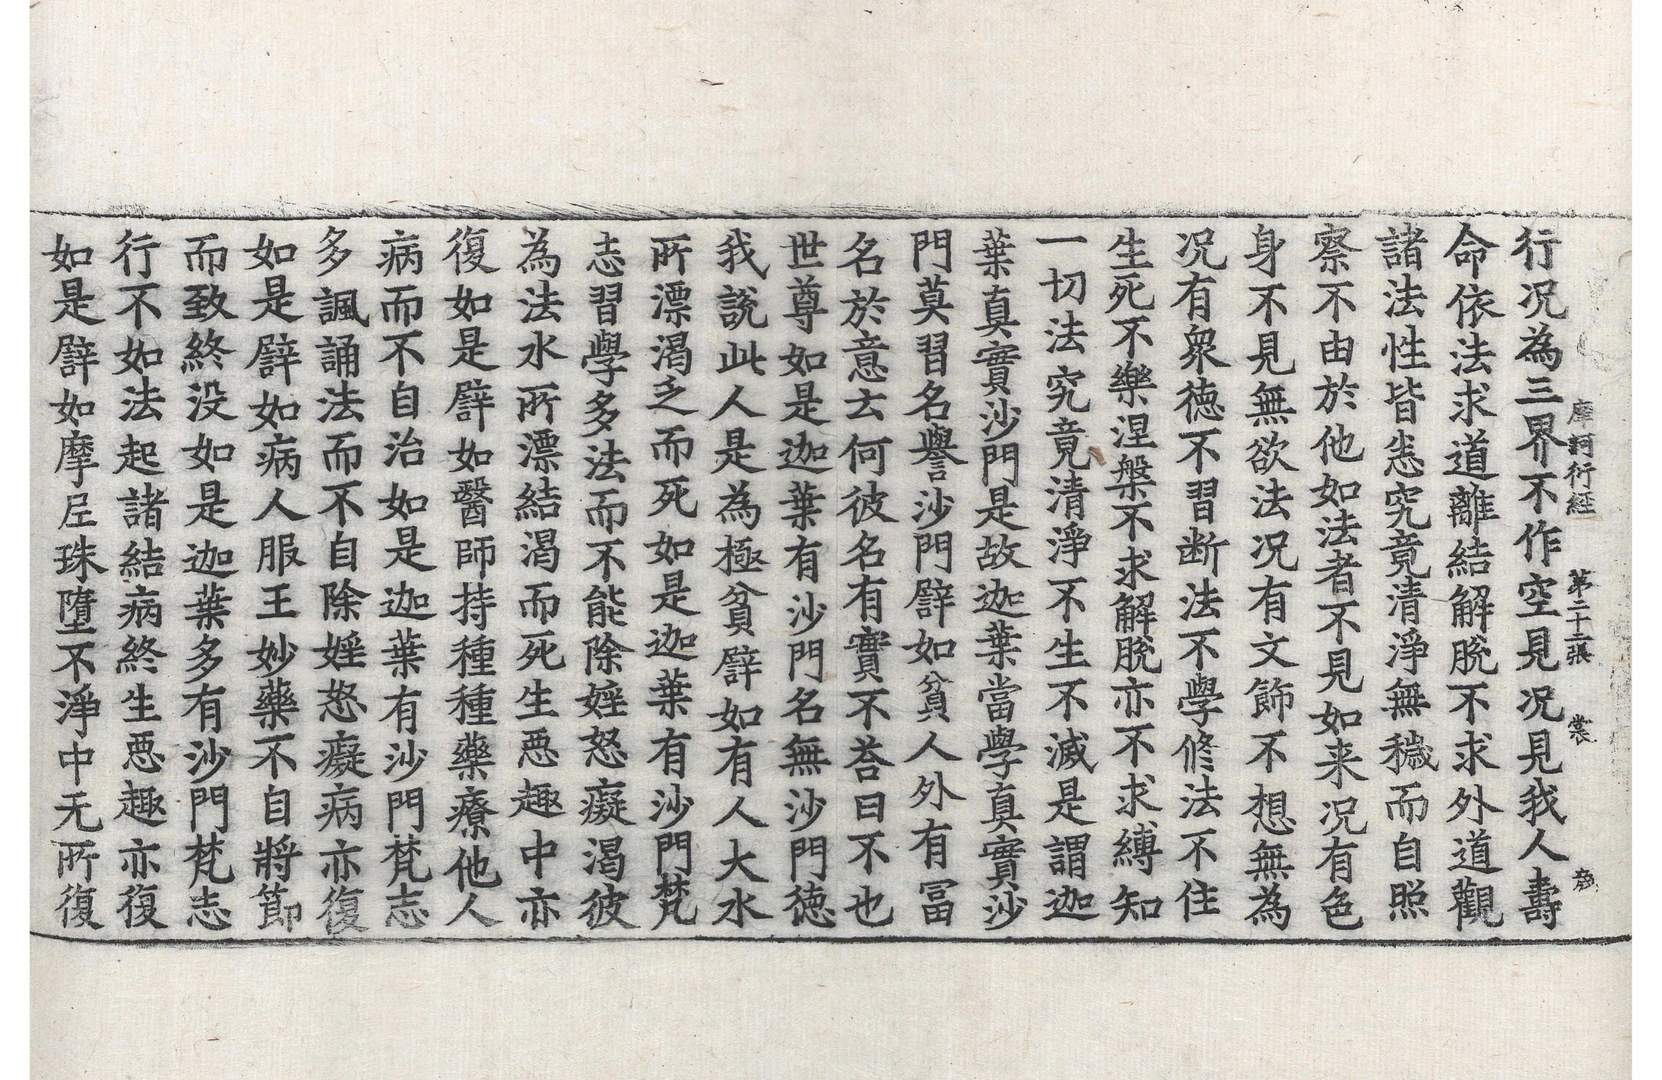 摩訶衍經　第二十二張　裳　彦
行況為三界不作空見況見我人壽
命依法求道離結解脫不求外道觀
諸法性皆悉究竟清淨無穢而自照
察不由於他如法者不見如来況有色
身不見無欲法況有文飾不想無為
況有衆德不習断法不學修法不住
生死不樂涅槃不求解脫亦不求縛知
一切法究竟清淨不生不滅是謂迦
葉真實沙門是故迦葉當學真實沙
門莫習名譽沙門譬如貧人外有冨
名於意云何彼名有實不荅曰不也
世尊如是迦葉有沙門名無沙門德
我說此人是為極貧譬如有人大水
所漂渴乏而死如是迦葉有沙門梵
志習學多法而不能除婬怒癡渴彼
為法水所漂結渴而死生惡趣中亦
復如是譬如醫師持種種藥療他人
病而不自治如是迦葉有沙門梵志
多諷誦法而不自除婬怒癡病亦復
如是譬如病人服王妙藥不自將節
而致終没如是迦葉多有沙門梵志
行不如法起諸結病終生惡趣亦復
如是譬如摩尼珠墮不淨中无所復